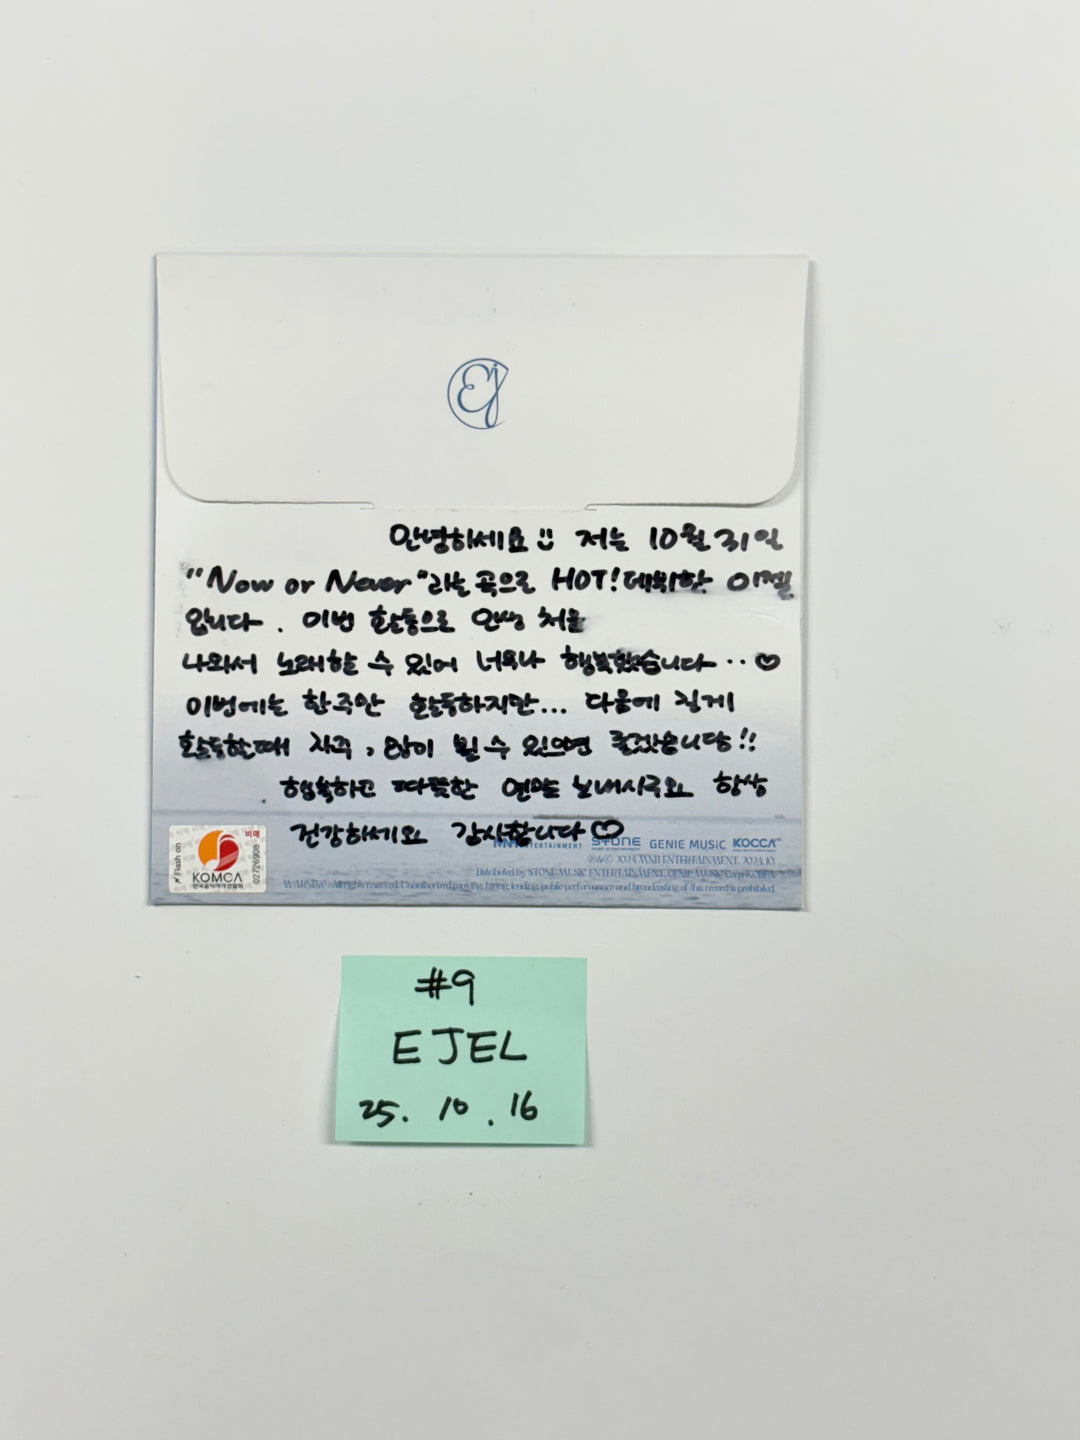 Ej
안녕하세요 :) 저는 10월 31일
"Now or Never"라는 곡으로 HOT! 데뷔한 이젤
입니다. 이번 활동으로 인생 처음
나와서 노래할 수 있어 너무나 행복했습니다..♡
이번에는 한주만 활동하지만... 다음에 길게
활동할때 자주, 많이 뵐 수 있으면 좋겠습니당!!
행복하고 따뜻한 연말 보내시구요 항상
건강하세요 감사합니다♡
ENTERTAINMENT STONE GENIE MUSIC KOCCA
℗&© 2024 MNH ENTERTAINMENT. 2024.10.
Distributed by STONE MUSIC ENTERTAINMENT, GENIE MUSIC Corp. KOREA
WARNING: All rights reserved. Unauthorized copying, hiring, lending, public performance and broadcasting of this record is prohibited.
Flash on
비매
KOMCA
한국음악저작권협회
02726908
#9
EJEL
25. 10. 16